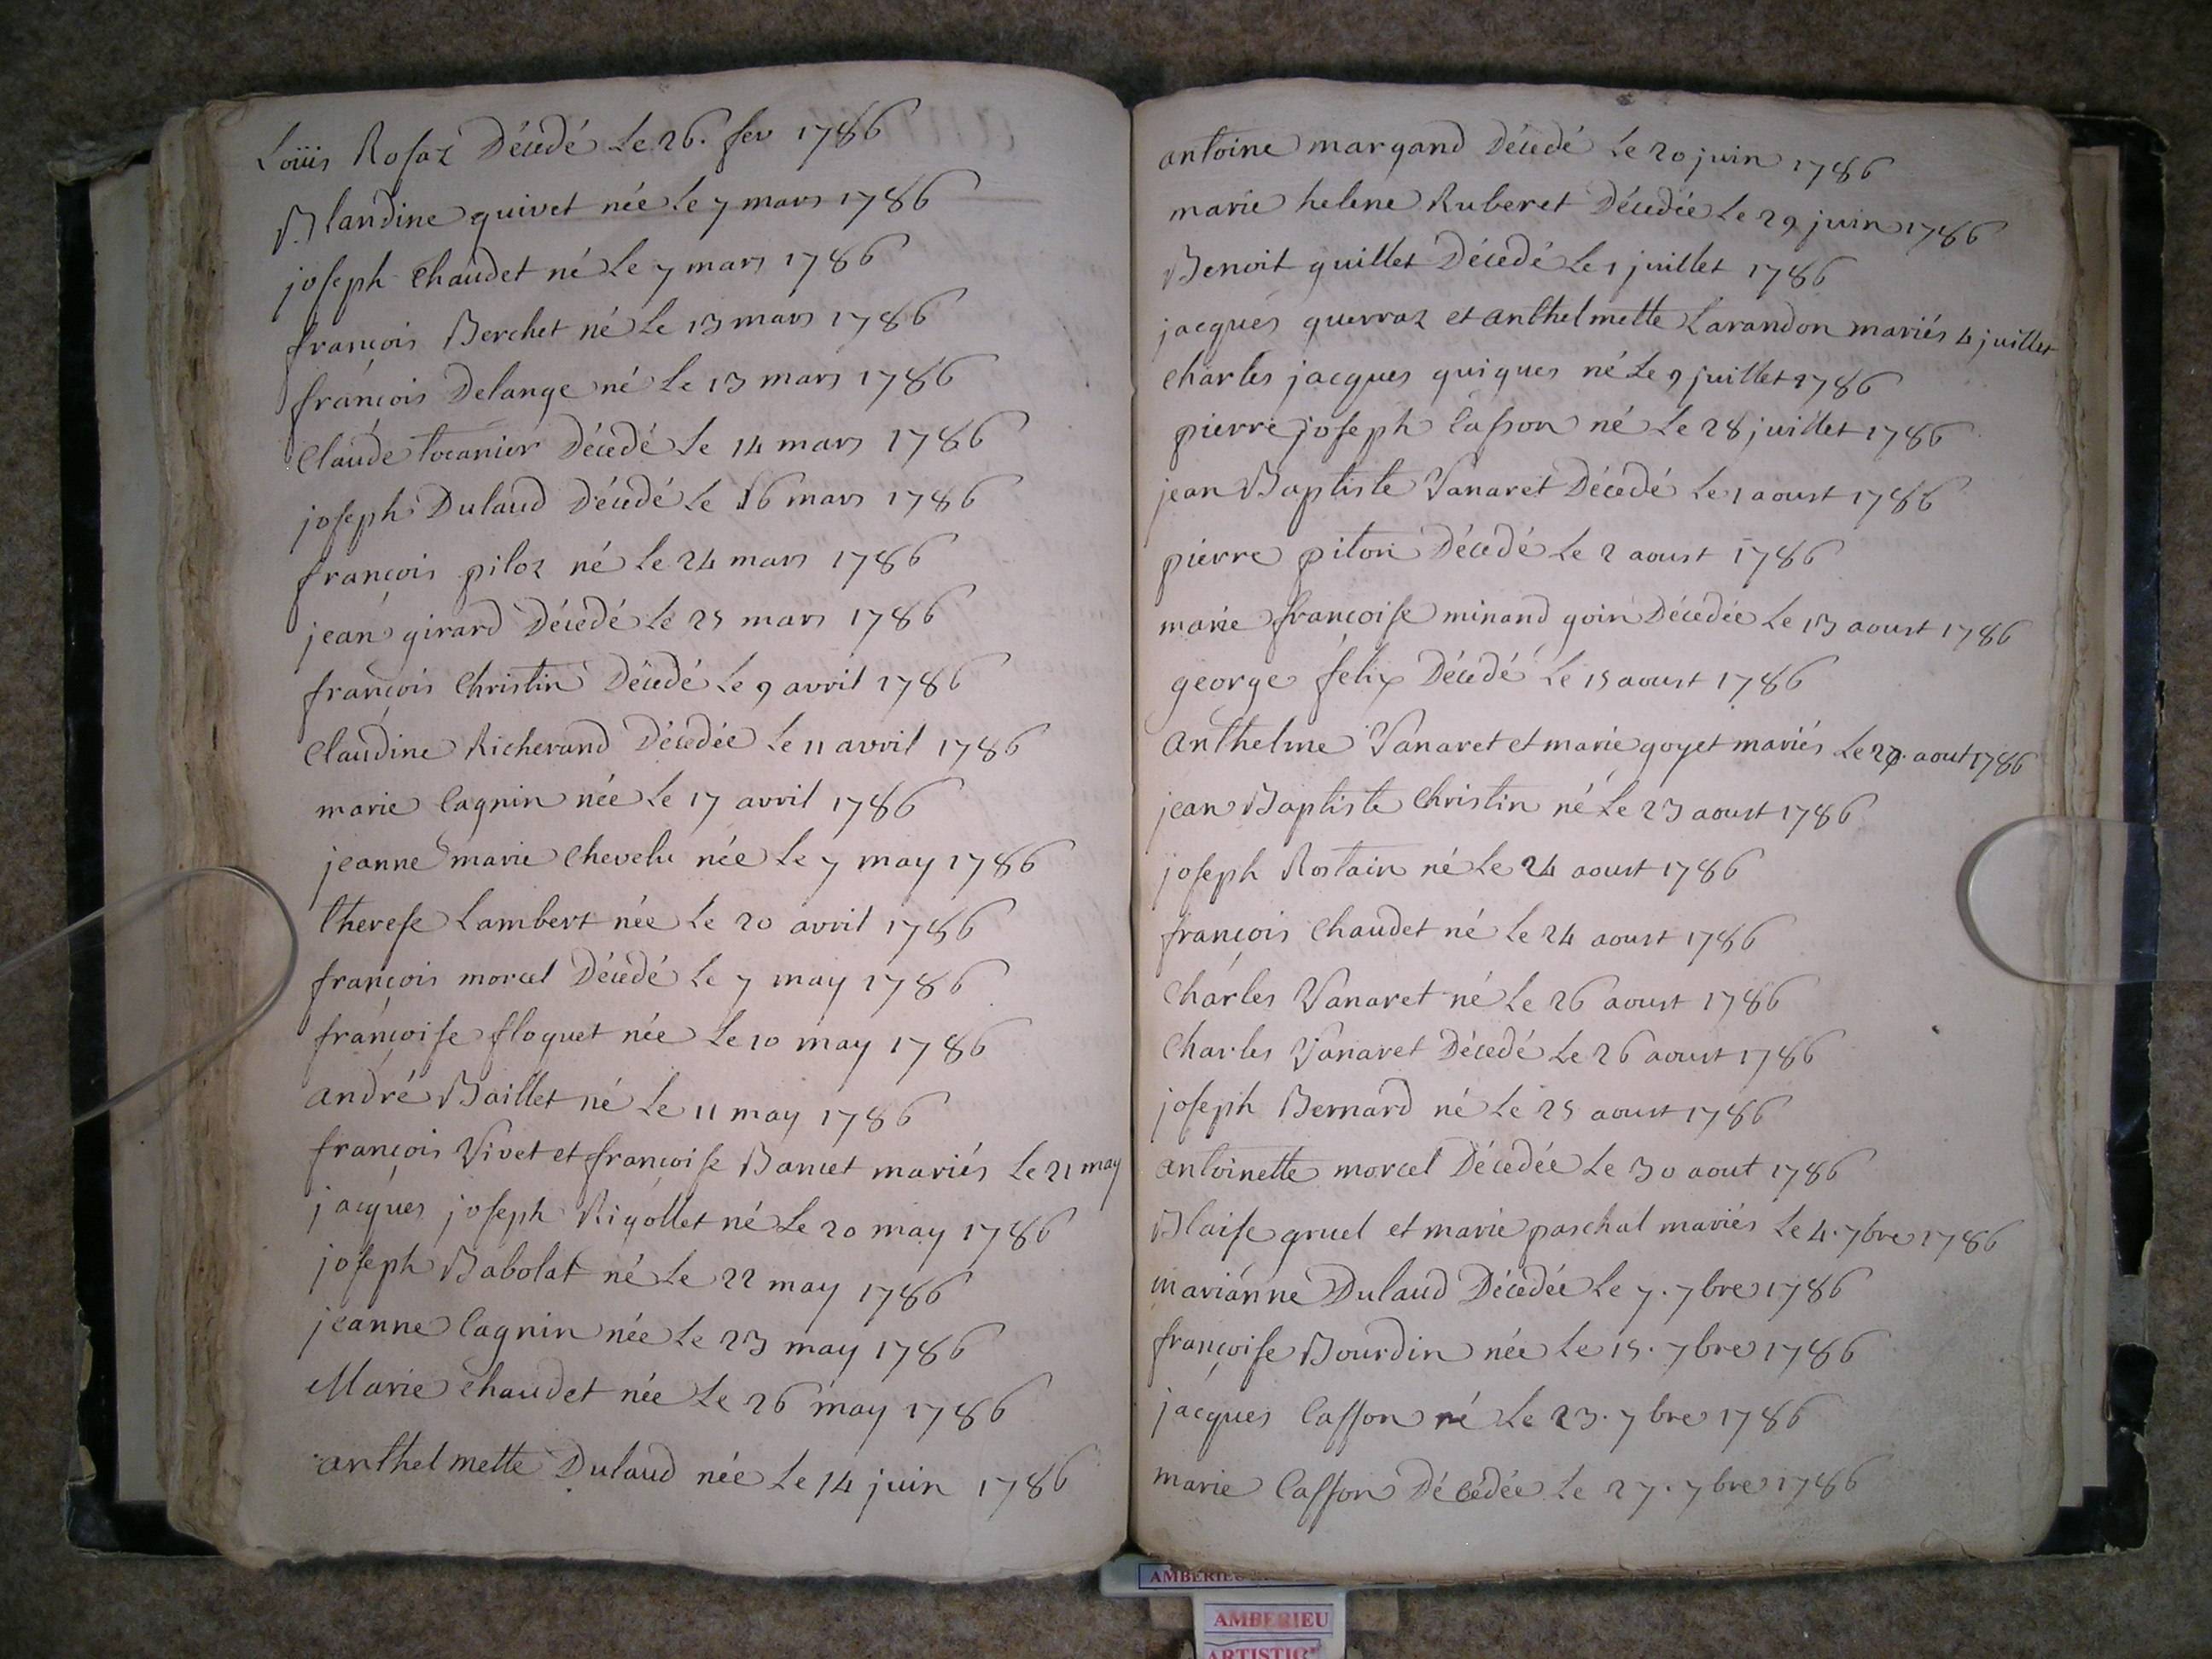 Loüis Rosaz Décedé Le 26. fev 1786
Blandine guivet née Le 7 mars 1786
joseph Chaudet né Le 7 mars 1786
françois Berchet né Le 13 mars 1786
françois Delange né Le 13 mars 1786
Claude tocanier Décedé Le 14 mars 1786
joseph Dulaud Décedé Le 16 mars 1786
françois piloz né Le 24 mars 1786
jean girard Décedé Le 25 mars 1786
françois Christin Décedé Le 9 avril 1786
Claudine Richerand Décedée Le 11 avril 1786
marie Cagnin née Le 17 avril 1786
jeanne marie Chevelu née Le 7 may 1786
therese Lambert née Le 20 avril 1786
françois morcel Décedé Le 7 may 1786
françoise floquet née Le 10 may 1786
andré Baillet né Le 11 may 1786
françois Vivet et françoise Bancet mariés Le 21 may
jacques joseph Rigollet né Le 20 may 1786
joseph Babolat né Le 22 may 1786
jeanne Cagnin née Le 23 may 1786
Marie Chaudet née Le 26 may 1786
anthelmette Dulaud née Le 14 juin 1786
antoine margand Décedé Le 20 juin 1786
marie helene Ruberet Décedée Le 29 juin 1786
Benoit guillet Décedé Le 1 juillet 1786
jacques guerraz et anthelmette Larandon mariés 4 juillet
Charles jacques guigues né Le 9 juillet 1786
pierre joseph Casson né Le 28 juillet 1786
jean Baptiste Vanaret Décedé Le 1 aoust 1786
pierre piton Décedé Le 2 aoust 1786
marie françoise minand goin Décedée Le 13 aoust 1786
george felix Décedé Le 15 aoust 1786
anthelme Vanaret et marie goyet mariés Le aout 1786
jean Baptiste Christin né Le 23 aoust 1786
joseph Rostain né Le 24 aoust 1786
françois Chaudet né Le 24 aoust 1786
Charles Vanaret né Le 26 aoust 1786
Charles Vanaret Décedé Le 26 aoust 1786
joseph Bernard né Le 25 aoust 1786
antoinette morcel Décedée Le 30 aout 1786
Blaise gruel et marie paschal mariés Le 4. 7bre 1786
marianne Dulaud Décedée Le 7. 7bre 1786
françoise Bourdin née Le 15. 7bre 1786
jacques Casson né Le 23. 7bre 1786
marie Casson Décédée Le 27. 7bre 1786
AMBERIEU
AMBERIEU